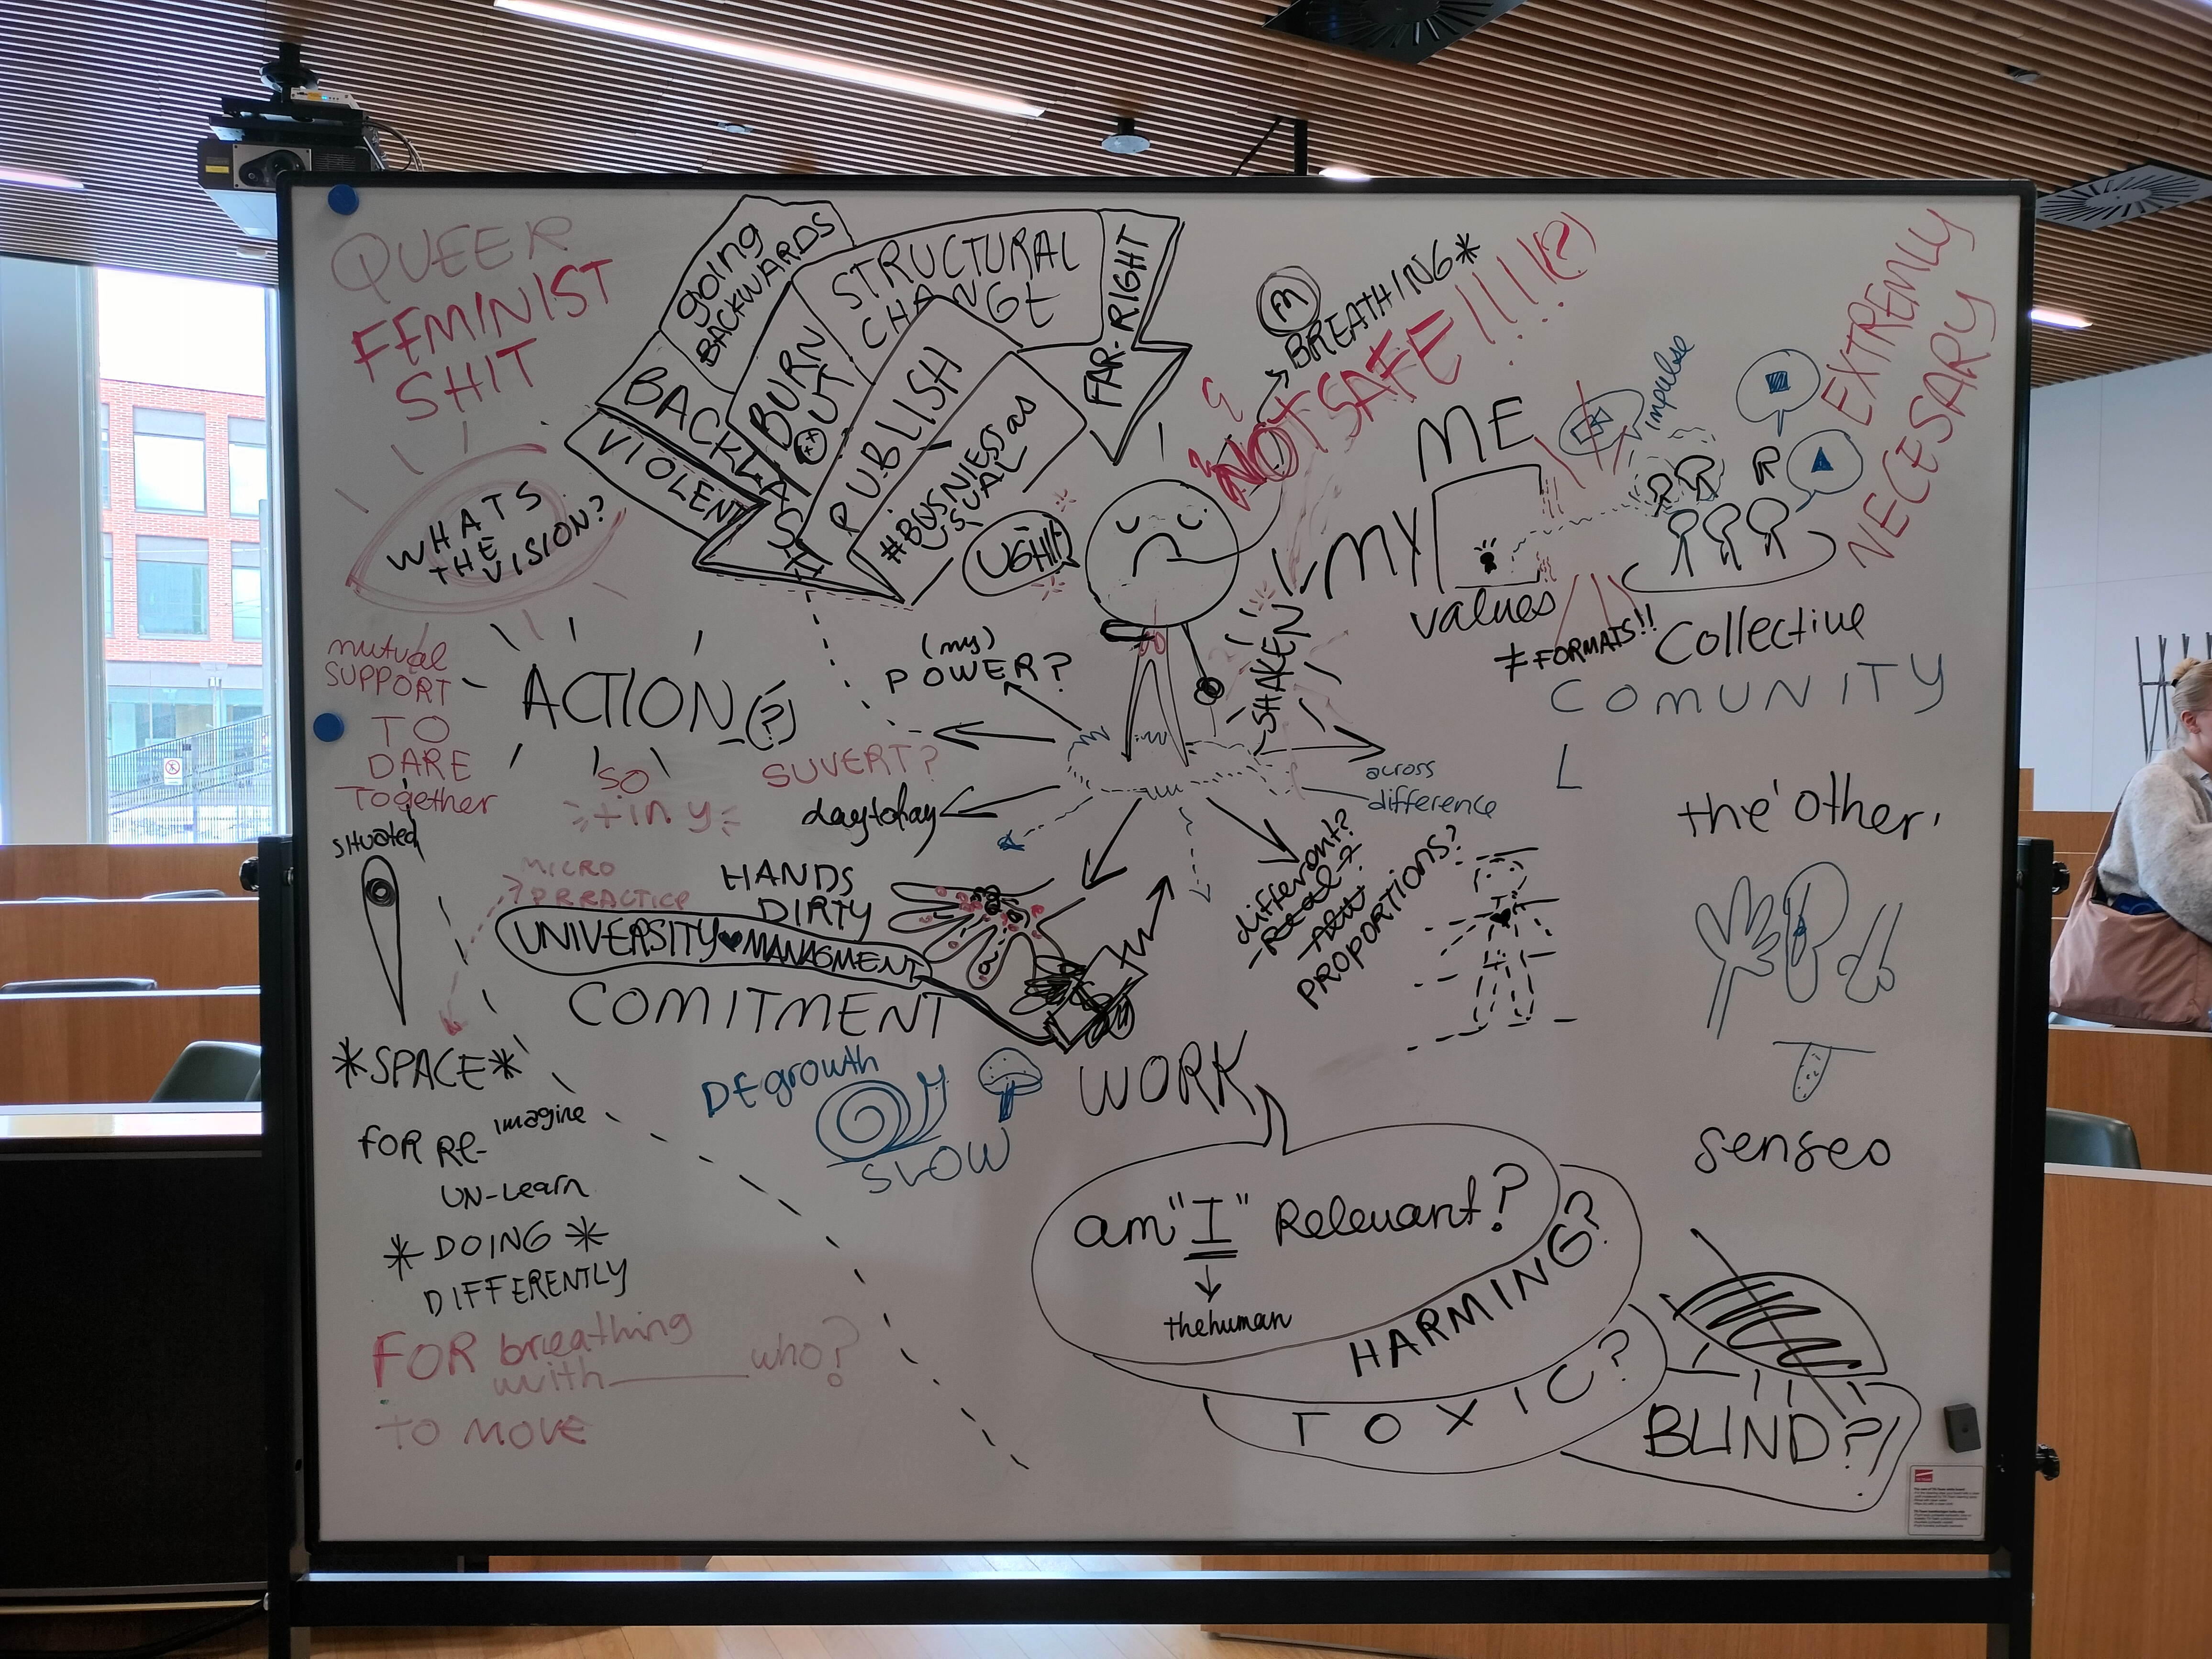 QUEER
FEMINIST
SHIT
going
BACKWARDS
STRUCTURAL
CHANGE
FAR-RIGHT
BURN
OUT
BACKLASH
VIOLENT
PUBLISH
#BUSNESS as
USUAL
UGH!!
M
BREATHING*
NOT SAFE!!!!(?)
EXTREMLY
NECESARY
WHATS
THE
VISION?
ME
MY
values
impulse
≠ FORMATS!!
Collective
COMUNITY
mutual
SUPPORT
TO
DARE
Together
ACTION(?)
SO
tiny
(my)
POWER?
SHAKEN
SUVERT?
day to day
across
difference
the 'other'
situated
MICRO
PRRACTICE
HANDS
DIRTY
UNIVERSITY ♥ MANAGMENT
COMITMENT
different?
PROPORTIONS?
*SPACE*
FOR RE- imagine
UN-Learn
* DOING *
DIFFERENTLY
FOR breathing
with ______ who?
TO MOVE
DEgrowth
SLOW
WORK
senses
am "I" Relevant?
the human
HARMING?
TOXIC?
BLIND?!